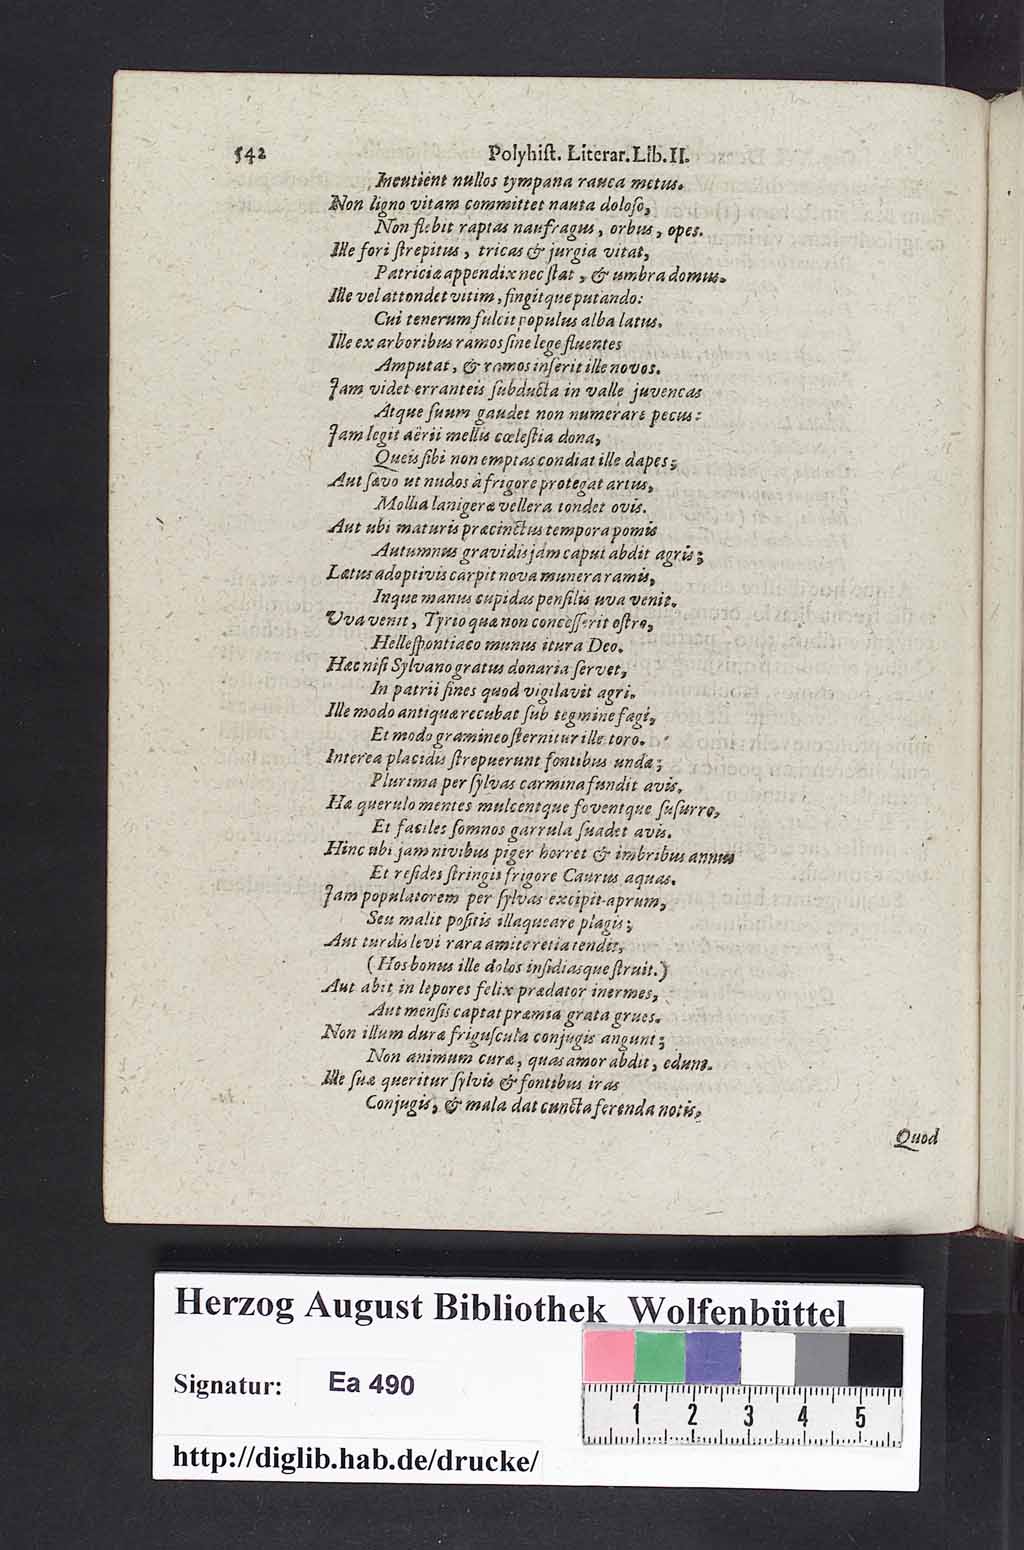 542 Polyhist. Literar. Lib. II.
Incutient nullos tympana rauca metus.
Non ligno vitam committet nauta doloso,
Non flebit raptas naufragus, orbus, opes.
Ille fori strepitus, tricas & jurgia vitat,
Patriciæ appendix nec stat, & umbra domus.
Ille vel attondet vitim, fingitque putando:
Cui tenerum fulcit populus alba latus.
Ille ex arboribus ramos sine lege fluentes
Amputat, & ramos inserit ille novos.
Jam videt erranteis subducta in valle juvencas
Atque suum gaudet non numerare pecus:
Jam legit aërii mellis cœlestia dona,
Queis sibi non emptas condiat ille dapes;
Aut sævo ut nudos à frigore protegat artus,
Mollia lanigeræ vellera tondet ovis.
Aut ubi maturis præcinctus tempora pomis
Autumnus gravidis jam caput abdit agris;
Lætus adoptivis carpit nova munera ramis,
Inque manus cupidas pensilis uva venit.
Uva venit, Tyrio quæ non concesserit ostro,
Hellespontiaco munus itura Deo.
Hæc nisi Sylvano gratus donaria servet,
In patrii fines quod vigilavit agri.
Ille modo antiquæ recubat sub tegmine fagi,
Et modo gramineo sternitur ille toro.
Interea placidis strepuerunt fontibus undæ;
Plurima per sylvas carmina fundit avis.
Hæ querulo mentes mulcentque foventque susurro,
Et faciles somnos garrula suadet avis.
Hinc ubi jam nivibus piger horret & imbribus annus
Et resides stringit frigore Caurus aquas.
Jam populatorem per sylvas excipit aprum,
Seu malit positis illaqueare plagis;
Aut turdis levi rara amite retia tendit,
(Hos bonus ille dolos insidiasque struit.)
Aut abit in lepores felix prædator inermes,
Aut mensis captat præmia grata grues.
Non illum duræ friguscula conjugis angunt;
Non animum curæ, quas amor abdit, edunt.
Ille suæ queritur sylvis & fontibus iras
Conjugis, & mala dat cuncta ferenda notis,
Quod
Herzog August Bibliothek Wolfenbüttel
Signatur: Ea 490
http://diglib.hab.de/drucke/
1 2 3 4 5